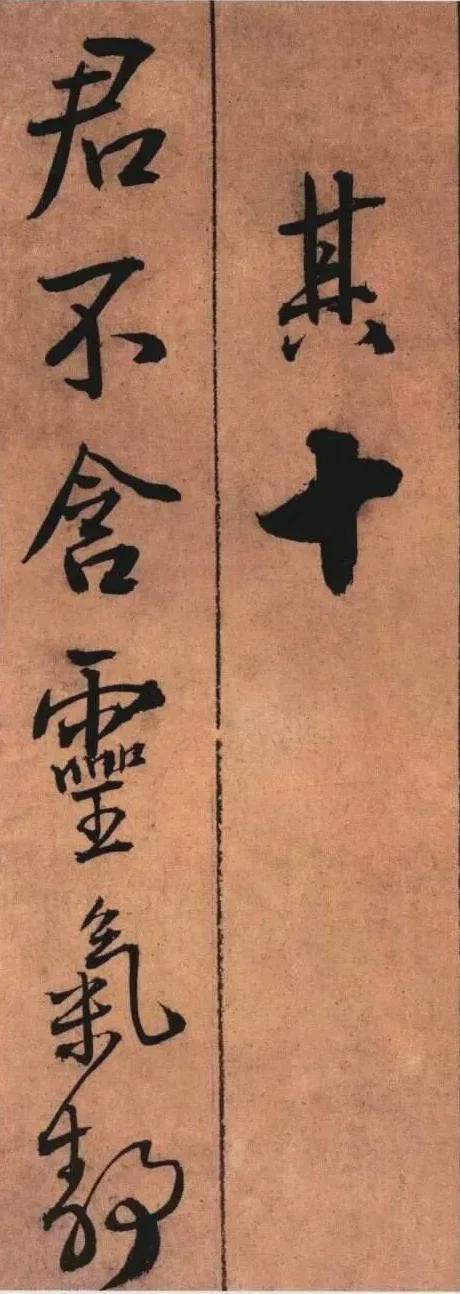 其十
君不含靈氣靜